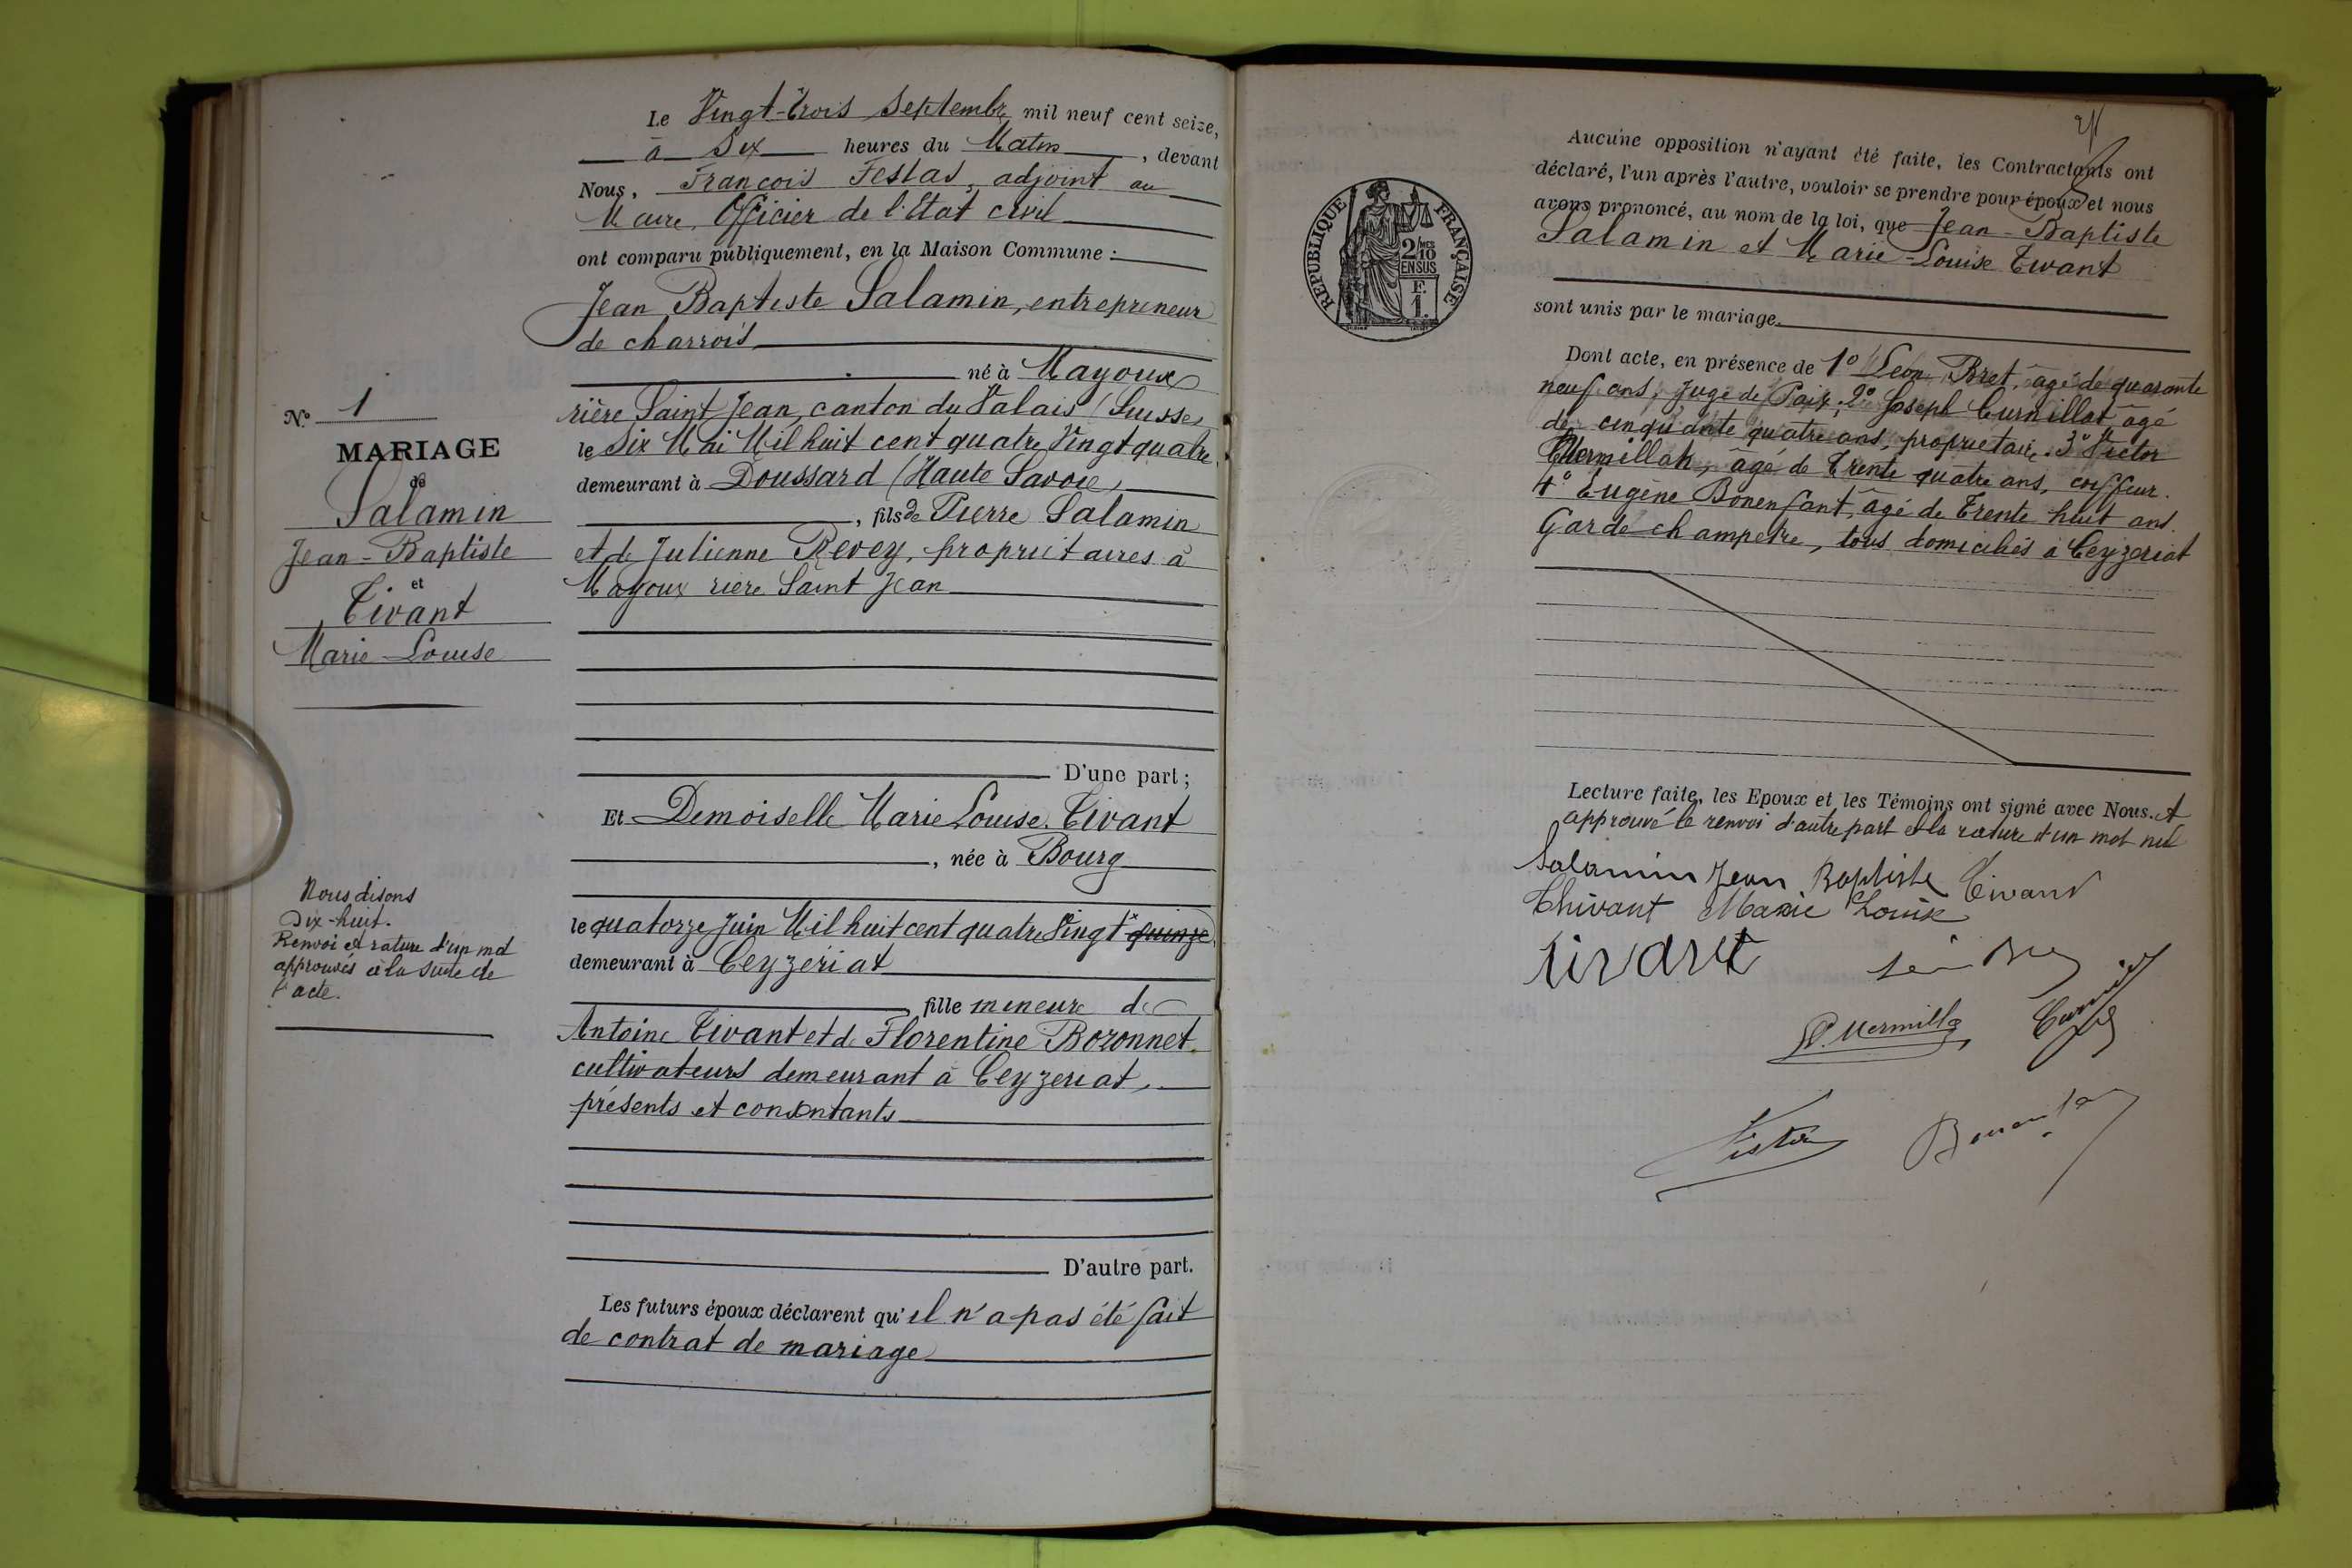 N° 1
MARIAGE
de
Salamin
Jean-Baptiste
et
Tivant
Marie-Louise
Nous disons
Dix-huit.
Renvoi et rature d'un mot
approuvés à la suite de
l'acte.
Le Vingt-trois Septembre mil neuf cent seize,
à Six heures du Matin, devant
Nous, François Festas, adjoint au
Maire, Officier de l'Etat civil
ont comparu publiquement, en la Maison Commune :
Jean Baptiste Salamin, entrepreneur
de charrois
né à Mayoux
rière Saint Jean, canton du Valais (Suisse)
le Six Mai Mil huit cent quatre Vingt quatre
demeurant à Doussard (Haute Savoie)
, fils de Pierre Salamin
et de Julienne Revey, propriétaires à
Mayoux rière Saint Jean
D'une part ;
Et Demoiselle Marie Louise Tivant
, née à Bourg
le quatorze Juin Mil huit cent quatre Vingt quinze
demeurant à Ceyzériat
fille mineure de
Antoine Tivant et de Florentine Bozonnet
cultivateurs demeurant à Ceyzeriat,
présents et consentants
D'autre part.
Les futurs époux déclarent qu'il n'a pas été fait
de contrat de mariage
REPUBLIQUE FRANÇAISE
2/10MES
EN SUS
F.
1.
Aucune opposition n'ayant été faite, les Contractants ont
déclaré, l'un après l'autre, vouloir se prendre pour époux et nous
avons prononcé, au nom de la loi, que Jean-Baptiste
Salamin et Marie-Louise Tivant
sont unis par le mariage.
Dont acte, en présence de 1° Léon Bret, âgé de quarante
neuf ans, Juge de Paix; 2° Joseph Curnillot, âgé
de cinquante quatre ans, propriétaire. 3° Victor
âgé de Trente quatre ans, coiffeur.
4° Eugène Bonenfant, âgé de Trente huit ans.
Garde champetre, tous domiciliés à Ceyzeriat
Lecture faite, les Epoux et les Témoins ont signé avec Nous. et
approuvé le renvoi d'autre part et la rature d'un mot nul
Salamin Jean Baptiste Tivant
Thivant Marie Louise
Tivant